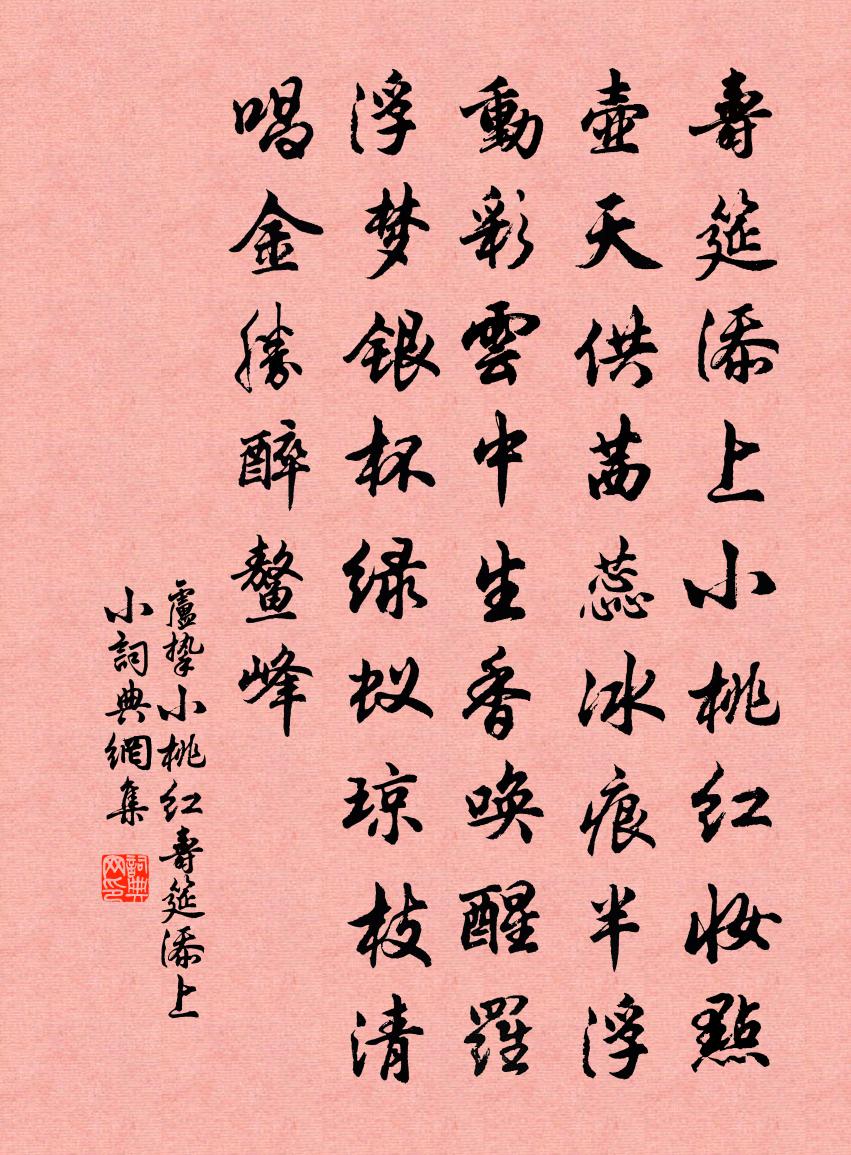 壽筵添上小桃红妝點
壺天供茜蕊冰痕半浮
動彩雲中生香喚醒羅
浮梦银杯绿蚁琼枝清
唱金勝醉鳌峰
盧挚小桃红壽筵添上
小詞典網集
詞典网印